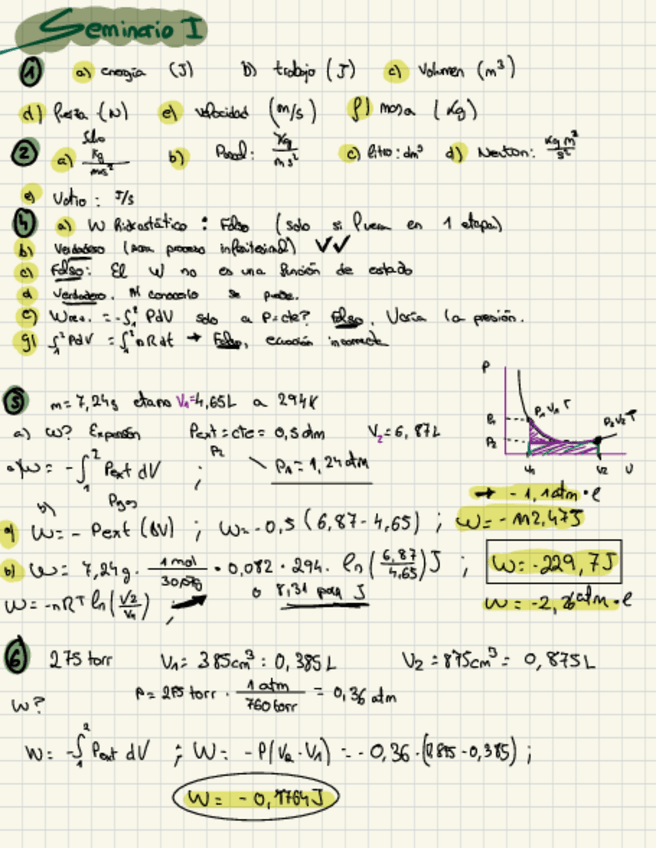 Seminario I
① a) energía (J) b) trabajo (J) c) Volumen (m³)
d) fuerza (N) e) velocidad (m/s) f) masa (Kg)
② a) Kg/ms² b) Pascal: Kg/ms² c) litro: dm³ d) Newton: Kg m/s²
e) Vatio: J/s
④ a) W hidrostático: Falso (solo si fuera en 1 etapa)
b) Verdadero (para proceso infinitesimal) ✓✓
c) Falso: El W no es una función de estado
d Verdadero. Al conocerlo se puede.
e) Wrev. = -∫₁² PdV solo a P=cte? Falso. Varía la presión.
g) ∫₁² PdV = ∫₁² nRdt → Falso, ecuación incorrecta
⑤ m= 7,24g etano V₁=4,65L a 294K
a) W? Expansión Pext=cte= 0,5atm V₂=6,87L
P₂
a) W= -∫₁² Pext dV ; P₁= 1,24atm
b) Pgas
P P₁ P₂ P₁V₁T P₂V₂T V₁ V₂ V
→ -1,1atm·l
a) W= -Pext (ΔV) ; W=-0,5 (6,87-4,65) ; W=-112,47J
b) W= 7,24g · 1mol/30,07g · 0,082 · 294 · ln(6,87/4,65)J ; W=-229,7J
o 8,31 para J
W= -nRT ln(V2/V1) ; W=-2,26atm·l
⑥ 275 torr V₁= 385cm³: 0,385L V₂= 875cm³= 0,875L
W? P= 275 torr · 1atm/760torr = 0,36 atm
W= -∫₁² Pext dV ; W= -P(V₂-V₁) = -0,36·(0,875-0,385) ;
W= -0,1764J